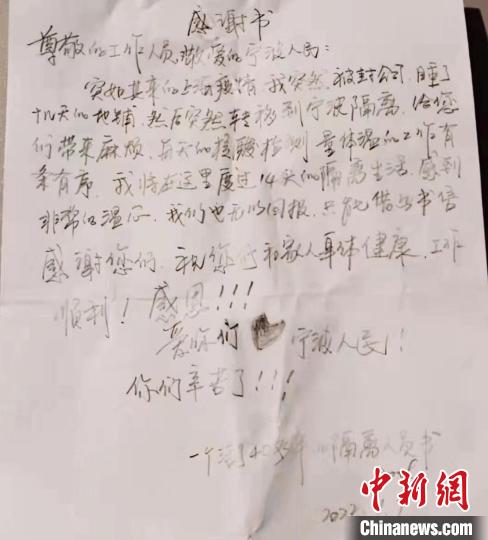 感谢书
尊敬的工作人员,敬爱的宁波人民:
突如其来的上海疫情,我突然被封公司,睡了
十几天的地铺,然后突然转移到宁波隔离,给您
们带来麻烦,每天的核酸检测,量体温的工作有
条有序,我将在这里度过14天的隔离生活,感到
非常的温心,我们也无以回报,只能借此书信
感谢您们,祝您们和家人身体健康,工作
顺利!感恩!!!
爱你们 宁波人民!
你们辛苦了!!!
一个 40 隔离人员书
2022.
中新网
Chinanews.com